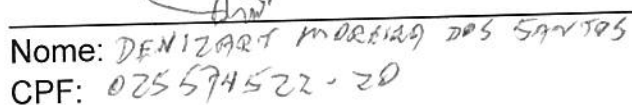 Nome: DENIZART MOREIRA DOS SANTOS
CPF: 025574522-20